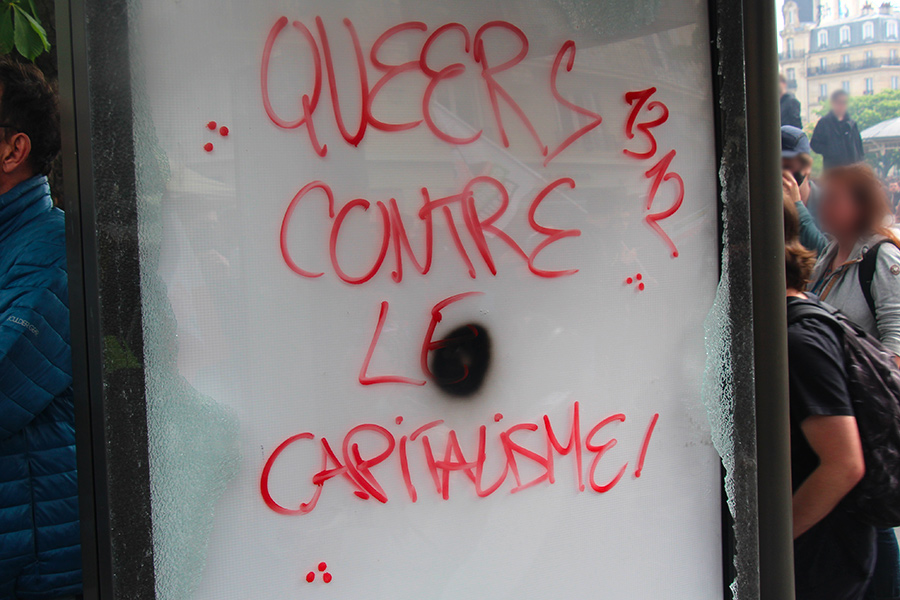 QUEERS
13
12
CONTRE
LE
CAPITALISME!